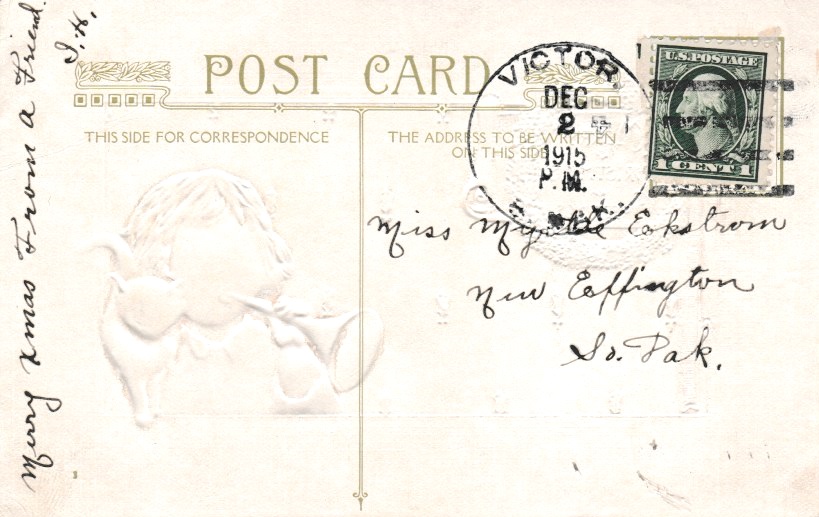 POST CARD
THIS SIDE FOR CORRESPONDENCE
THE ADDRESS TO BE WRITTEN
ON THIS SIDE
VICTOR,
DEC
2
1915
P.M.
U.S. POSTAGE
1 CENT 1
Miss Myrtle Eckstrom
New Effington
So. Dak.
Merry Xmas From a Friend.
I. H.